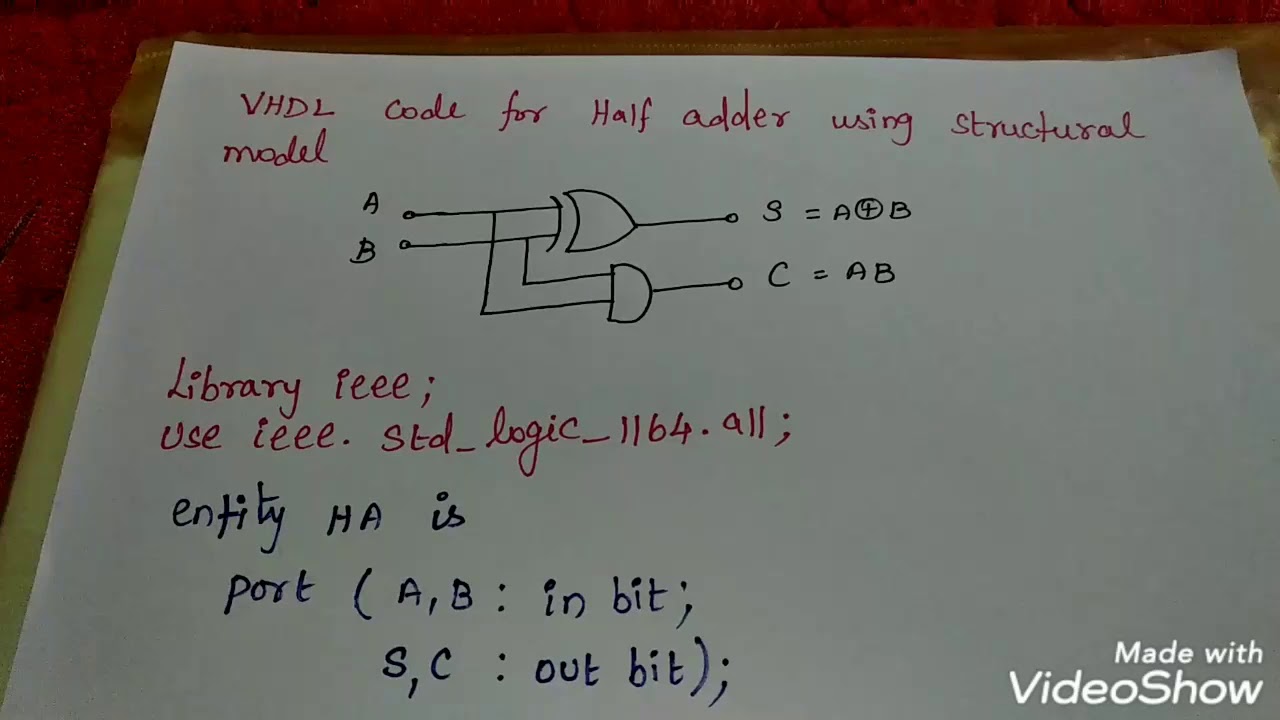 VHDL code for Half adder using structural
model
A
S = A⊕B
B
C = AB
Library ieee;
Use ieee. std_logic_1164.all;
entity HA is
port ( A, B : in bit;
S, C : out bit);
Made with
VideoShow